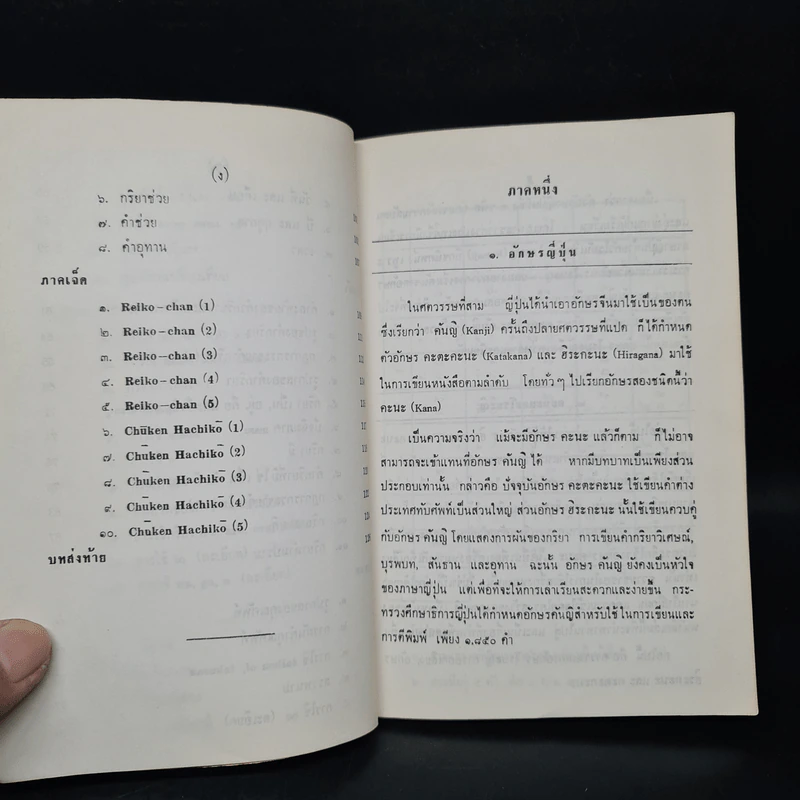 (ง)
๖. กริยาช่วย
๗. คำช่วย
๘. คำอุทาน
ภาคเจ็ด
๑. Reiko-chan (1)
๒. Reiko-chan (2)
๓. Reiko-chan (3)
๔. Reiko-chan (4)
๕. Reiko-chan (5)
๖. Chūken Hachikō (1)
๗. Chūken Hachikō (2)
๘. Chūken Hachikō (3)
๙. Chūken Hachikō (4)
๑๐. Chūken Hachikō (5)
บทส่งท้าย
ภาคหนึ่ง
๑. อักษรญี่ปุ่น
ในศตวรรษที่สาม ญี่ปุ่นได้นำเอาอักษรจีนมาใช้เป็นของตน
ซึ่งเรียกว่า คันญิ (Kanji) ครั้นถึงปลายศตวรรษที่แปด ก็ได้กำหนด
ตัวอักษร คะตะคะนะ (Katakana) และ ฮิระกะนะ (Hiragana) มาใช้
ในการเขียนหนังสือตามลำดับ โดยทั่วๆ ไปเรียกอักษรสองชนิดนี้ว่า
คะนะ (Kana)
เป็นความจริงว่า แม้จะมีอักษร คะนะ แล้วก็ตาม ก็ไม่อาจ
สามารถจะเข้าแทนที่อักษร คันญิ ได้ หากมีบทบาทเป็นเพียงส่วน
ประกอบเท่านั้น กล่าวคือ ปัจจุบันอักษร คะตะคะนะ ใช้เขียนคำต่าง
ประเทศทับศัพท์เป็นส่วนใหญ่ ส่วนอักษร ฮิระกะนะ นั้นใช้เขียนควบคู่
กับอักษร คันญิ โดยแสดงการผันของกริยา การเขียนคำกริยาวิเศษณ์,
บุรพบท, สันธาน และอุทาน ฉะนั้น อักษร คันญิ ยังคงเป็นหัวใจ
ของภาษาญี่ปุ่น แต่เพื่อที่จะให้การเล่าเรียนสะดวกและง่ายขึ้น กระ-
ทรวงศึกษาธิการญี่ปุ่นได้กำหนดอักษรคันญิสำหรับใช้ในการเขียนและ
การตีพิมพ์ เพียง ๑,๘๕๐ คำ